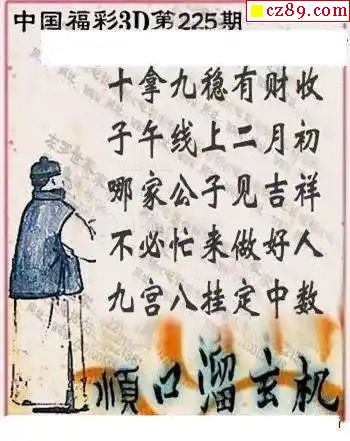 cz89.com
中国福彩3D第225期
十拿九稳有财收
子午线上二月初
哪家公子见吉祥
不必忙来做好人
九宫八挂定中数
顺口溜玄机